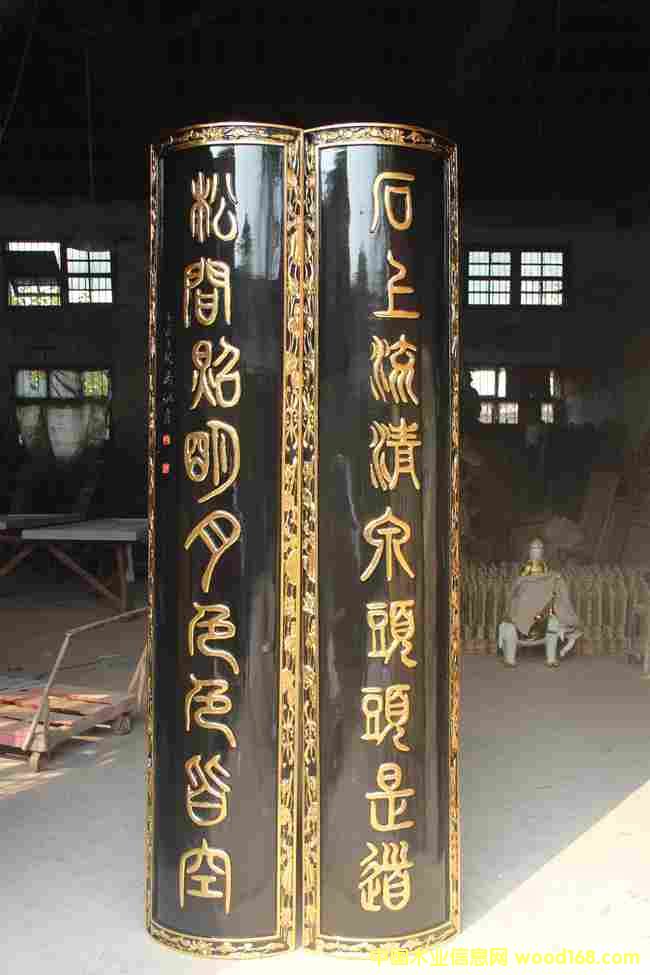 石上流清泉頭頭是道
松間照明月色色皆空
中国木业信息网 wood168.com